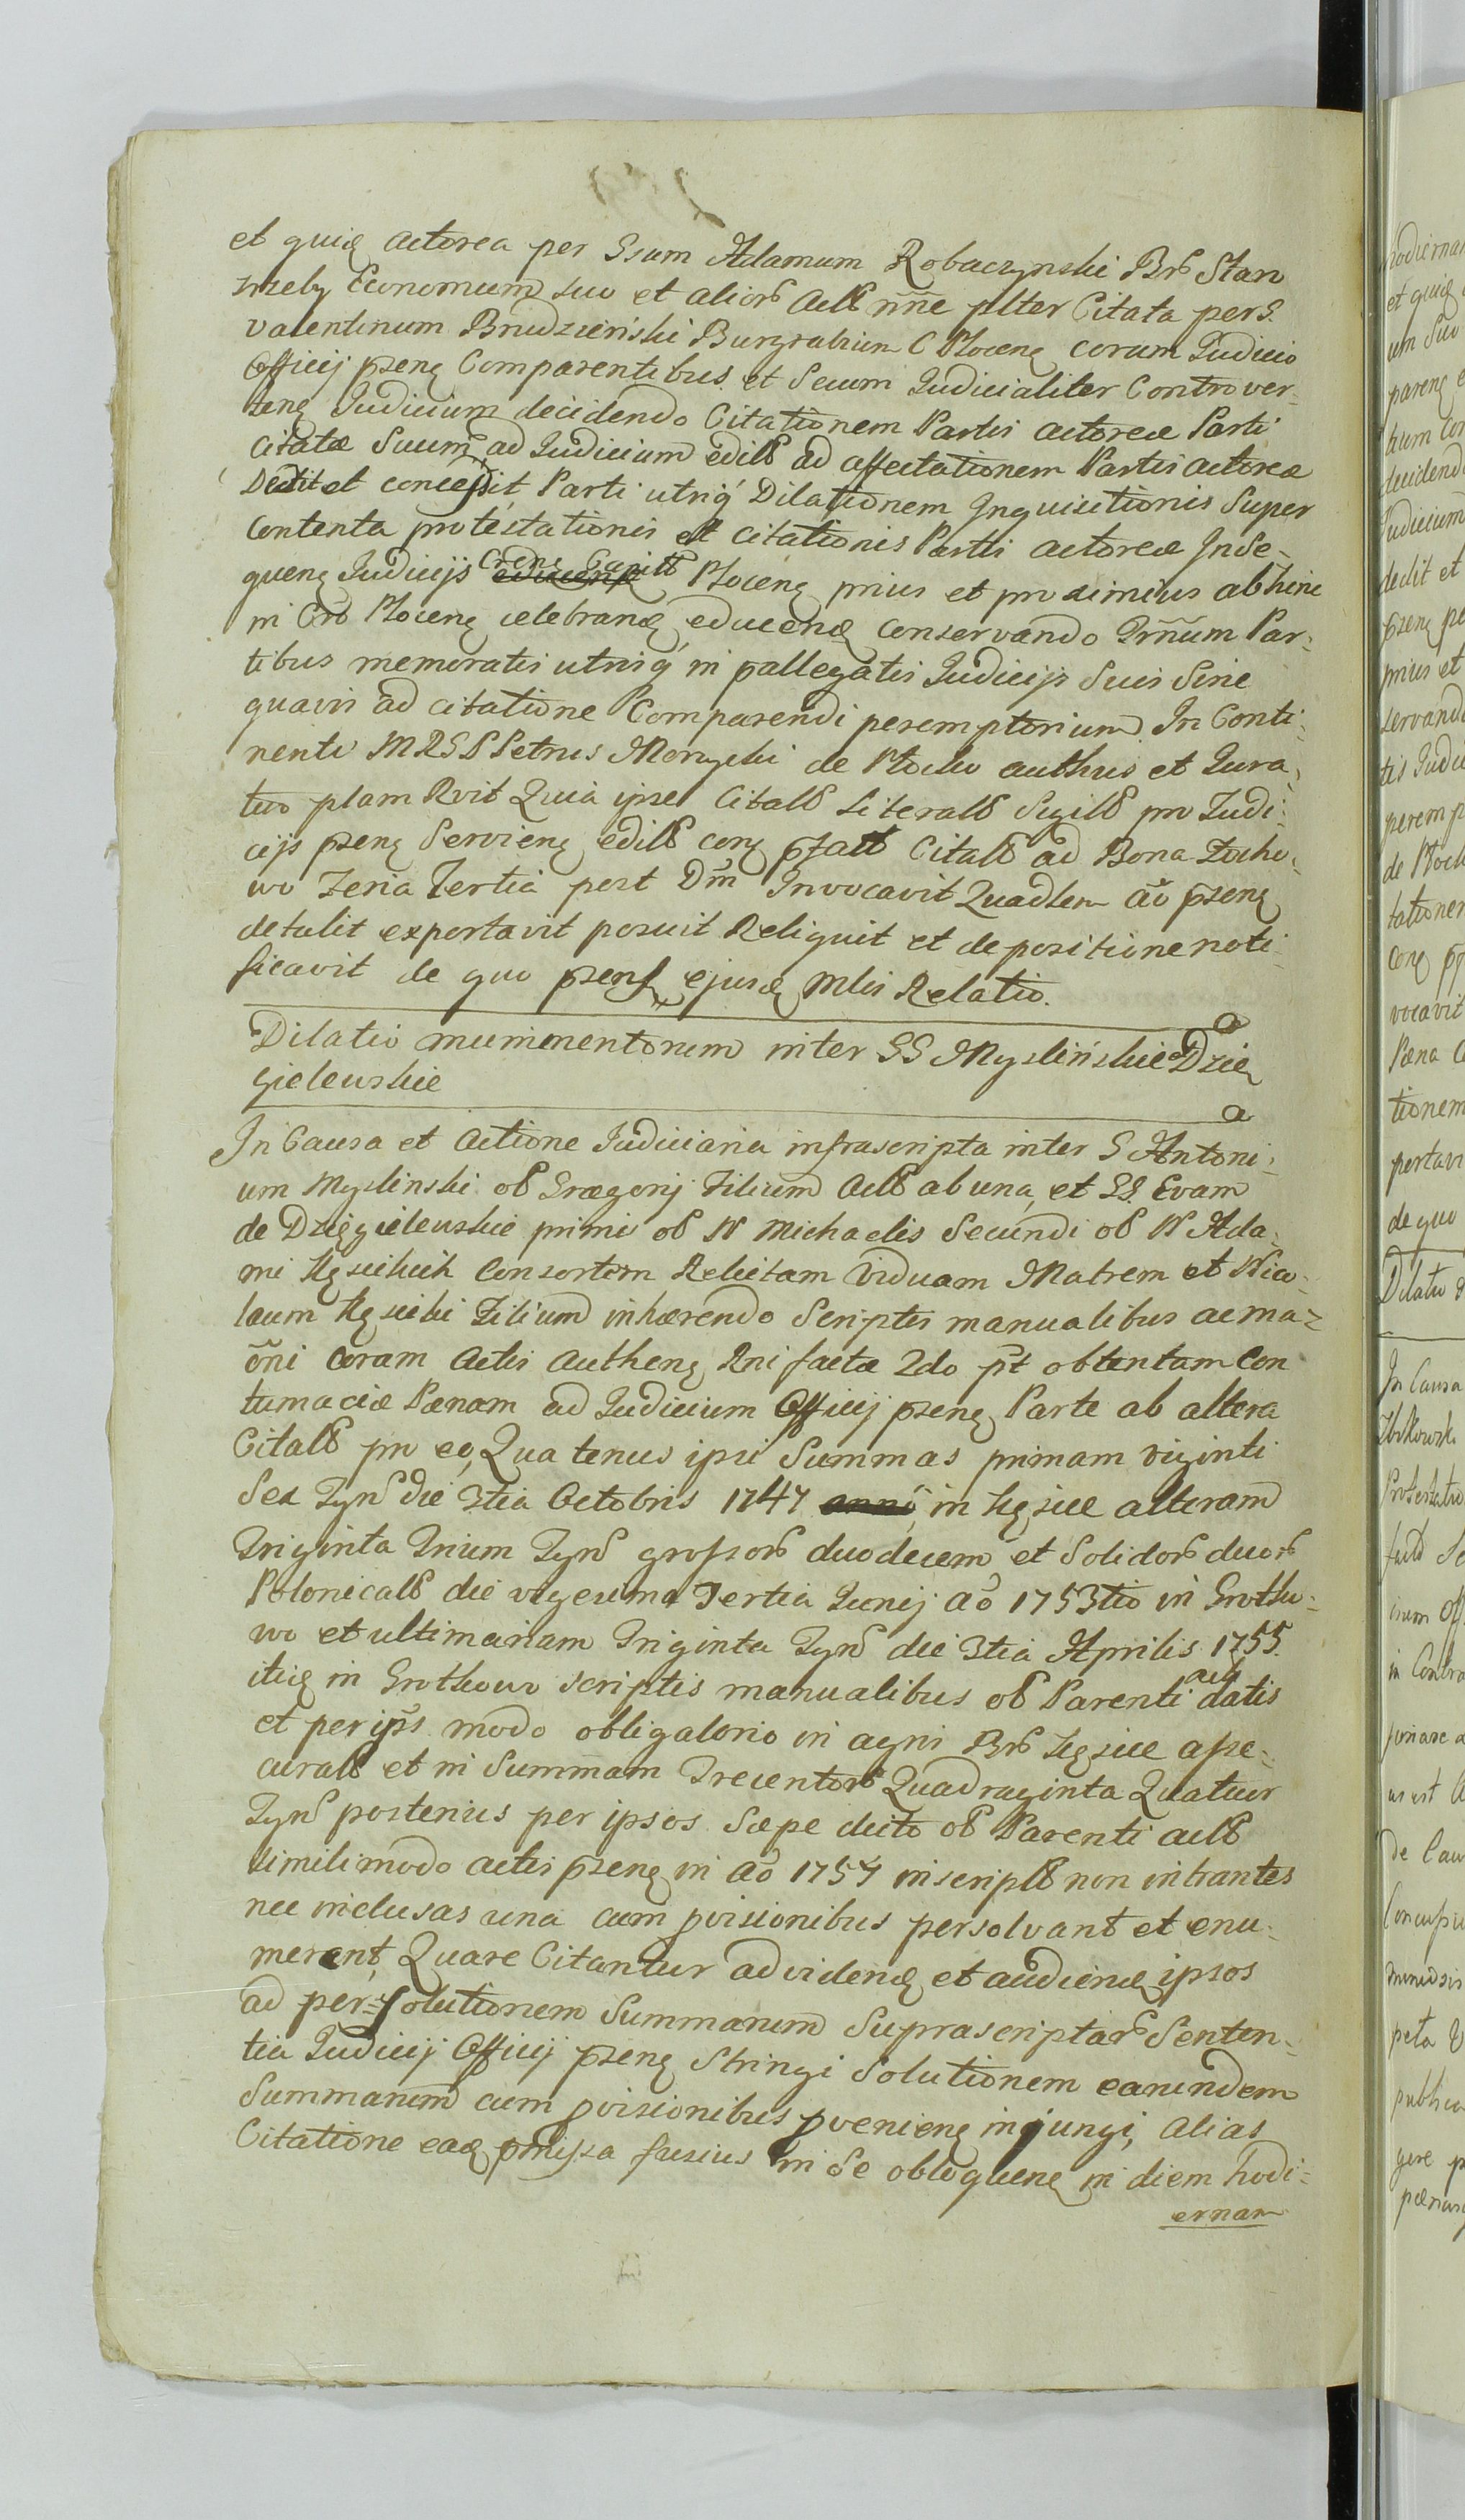 et quię actorea per Ssum Adamum Robaczynski Brb Staro
zrzeby Economum suo et alior̄ actt nn̄e plter Citata per S.
Valentinum Brudzieński Burgrabium C Plocenę coram Judicio
Officij pzenę Comparentibus et Secum Judicialiter Controver-
tenę Judicium decidendo Citationem Partis actoreæ Parti
Citatæ Suum ad Judicium edilł ad affectationem Partis actoreæ
Dedit et concessit Parti utriq́ Dilationem Inquisitionis Super
Contenta protestationis et citationis Parti actoreæ In Se-
quenę Judicijs Crens Capitł Plocenę prius et proximius abhinc
in Cro Plocenę celebrandę educendę conservando Trm̄num Par-
tibus memoratis utriq́ in pallegatis Judicijs Suis Sine
quavis ad citatione Comparendi peremptorium In Conti-
nenti MRSP Petrus Morzycki de Plocko authus et Jura-
tus plam Rvit Quia ipse Citałł Literałł Sigilł pro Judi-
cijs pzenę Servienę edilł conę pfatł Citałł ad Bona Zocho-
wo Feria Tertia post Dm̄ Invocavit Quadlem ao pzenę
detulit exportavit posuit Reliquit et de positione noti-
ficavit de quo pzens ejusdę Mlis Relatio.
Dilatio munimentorum inter SS Myslińskie a Dzię
gielewskie
In Causa et Actione Judiciaria infrascripta inter S Antoni-
um Myslinski ob Grægorij Filium Actł ab una, et SS. Evam
de Dzięgielewskie primi ob N Michaelis Secundi ob N Ada-
mi Kęsickich Consortem Relictam Viduam Matrem et Nico-
laum Kęsicki Filium inhærendo Scriptis manualibus ac ma-
ōni coram Actis Authenę Rni factæ 2do pt̄ obtentam Con
tumaciæ Pænam ad Judicium Officij pzenę Parte ab altera
Citałł pro eo, Quatenus ipsi Summas primam viginti
Sex Tynf die 3tia Octobris 1747 in Kęsice alteram
Triginta Trium Tynf grossor̄ duodecem et Solidor̄ duor̄
Polonicałł die vigesima Tertia Junij ao 1753tio in Grotho-
wo et ultimariam Triginta Tynf die 3tia Aprilis 1755.
itię in Grothowo scriptis manualibus ob Parenti actł datis
et per ips̄ modo obligatorio in agris Brb Kęsice asse-
curałł et in Summam Trecentor̄ Quadraginta Quatuor
Tynf posterius per ipsos Sæpe dicto ob Parenti actł
simili modo actis pzenę in ao 1754 inscriptł non intrantes
nec inclusas una cum pvisionibus persolvant et enu-
merent, Quare Citantur ad videndę et audiendę ipsos
ad per-solutionem Summarum Suprascriptar̄ Senten-
tia Judicij Officij pzenę Stringi Solutionem earundem
Summarum cum pvisionibus pvenienę injungi, alias
Citatione eadę pmissa fusius in Se obloquenę in diem hodi-
ernam